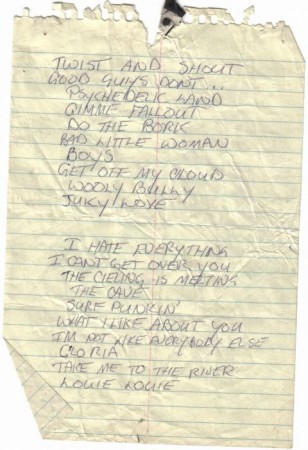 TWIST AND SHOUT
GOOD GUYS DONT..
PSYCHEDELIC LAND
GIMME FALLOUT
DO THE BORK
BAD LITTLE WOMAN
BOYS
GET OFF MY CLOUD
WOOLY BULLY
JUICY LOVE
I HATE EVERYTHING
I CANT GET OVER YOU
THE CIELING IS MELTING
THE CAVE
SURF PUNKIN'
WHAT I LIKE ABOUT YOU
I'M NOT LIKE EVERYBODY ELSE
GLORIA
TAKE ME TO THE RIVER
LOUIE LOUIE